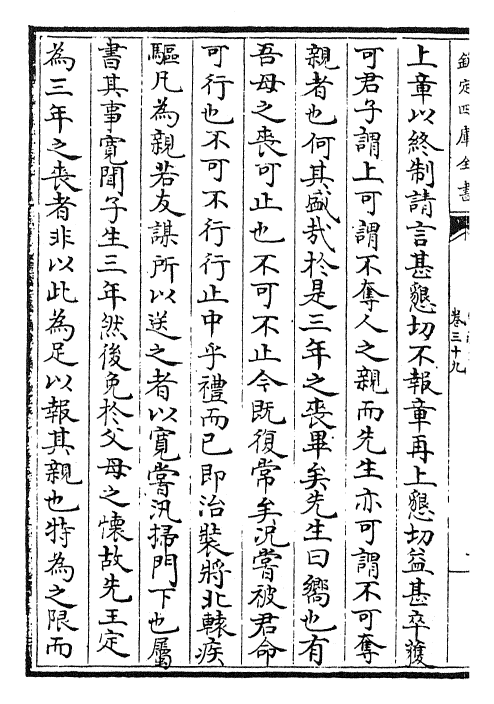 欽定四庫全書
卷三十九
上章以終制請言甚懇切不報章再上懇切益甚卒獲
可君子謂上可謂不奪人之親而先生亦可謂不可奪
親者也何其盛哉於是三年之喪畢矣先生曰嚮也有
吾母之喪可止也不可不止今既復常矣況嘗被君命
可行也不可不行行止中乎禮而已即治裝將北轅疾
驅凡為親若友謀所以送之者以寛嘗汛掃門下也屬
書其事寛聞子生三年然後免於父母之懐故先王定
為三年之喪者非以此為足以報其親也特為之限而